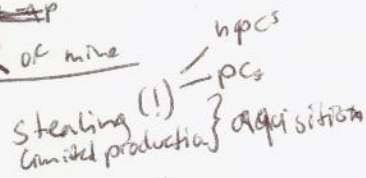 of mine
npcs
pcs
stealing (!)
limited production } aquisition